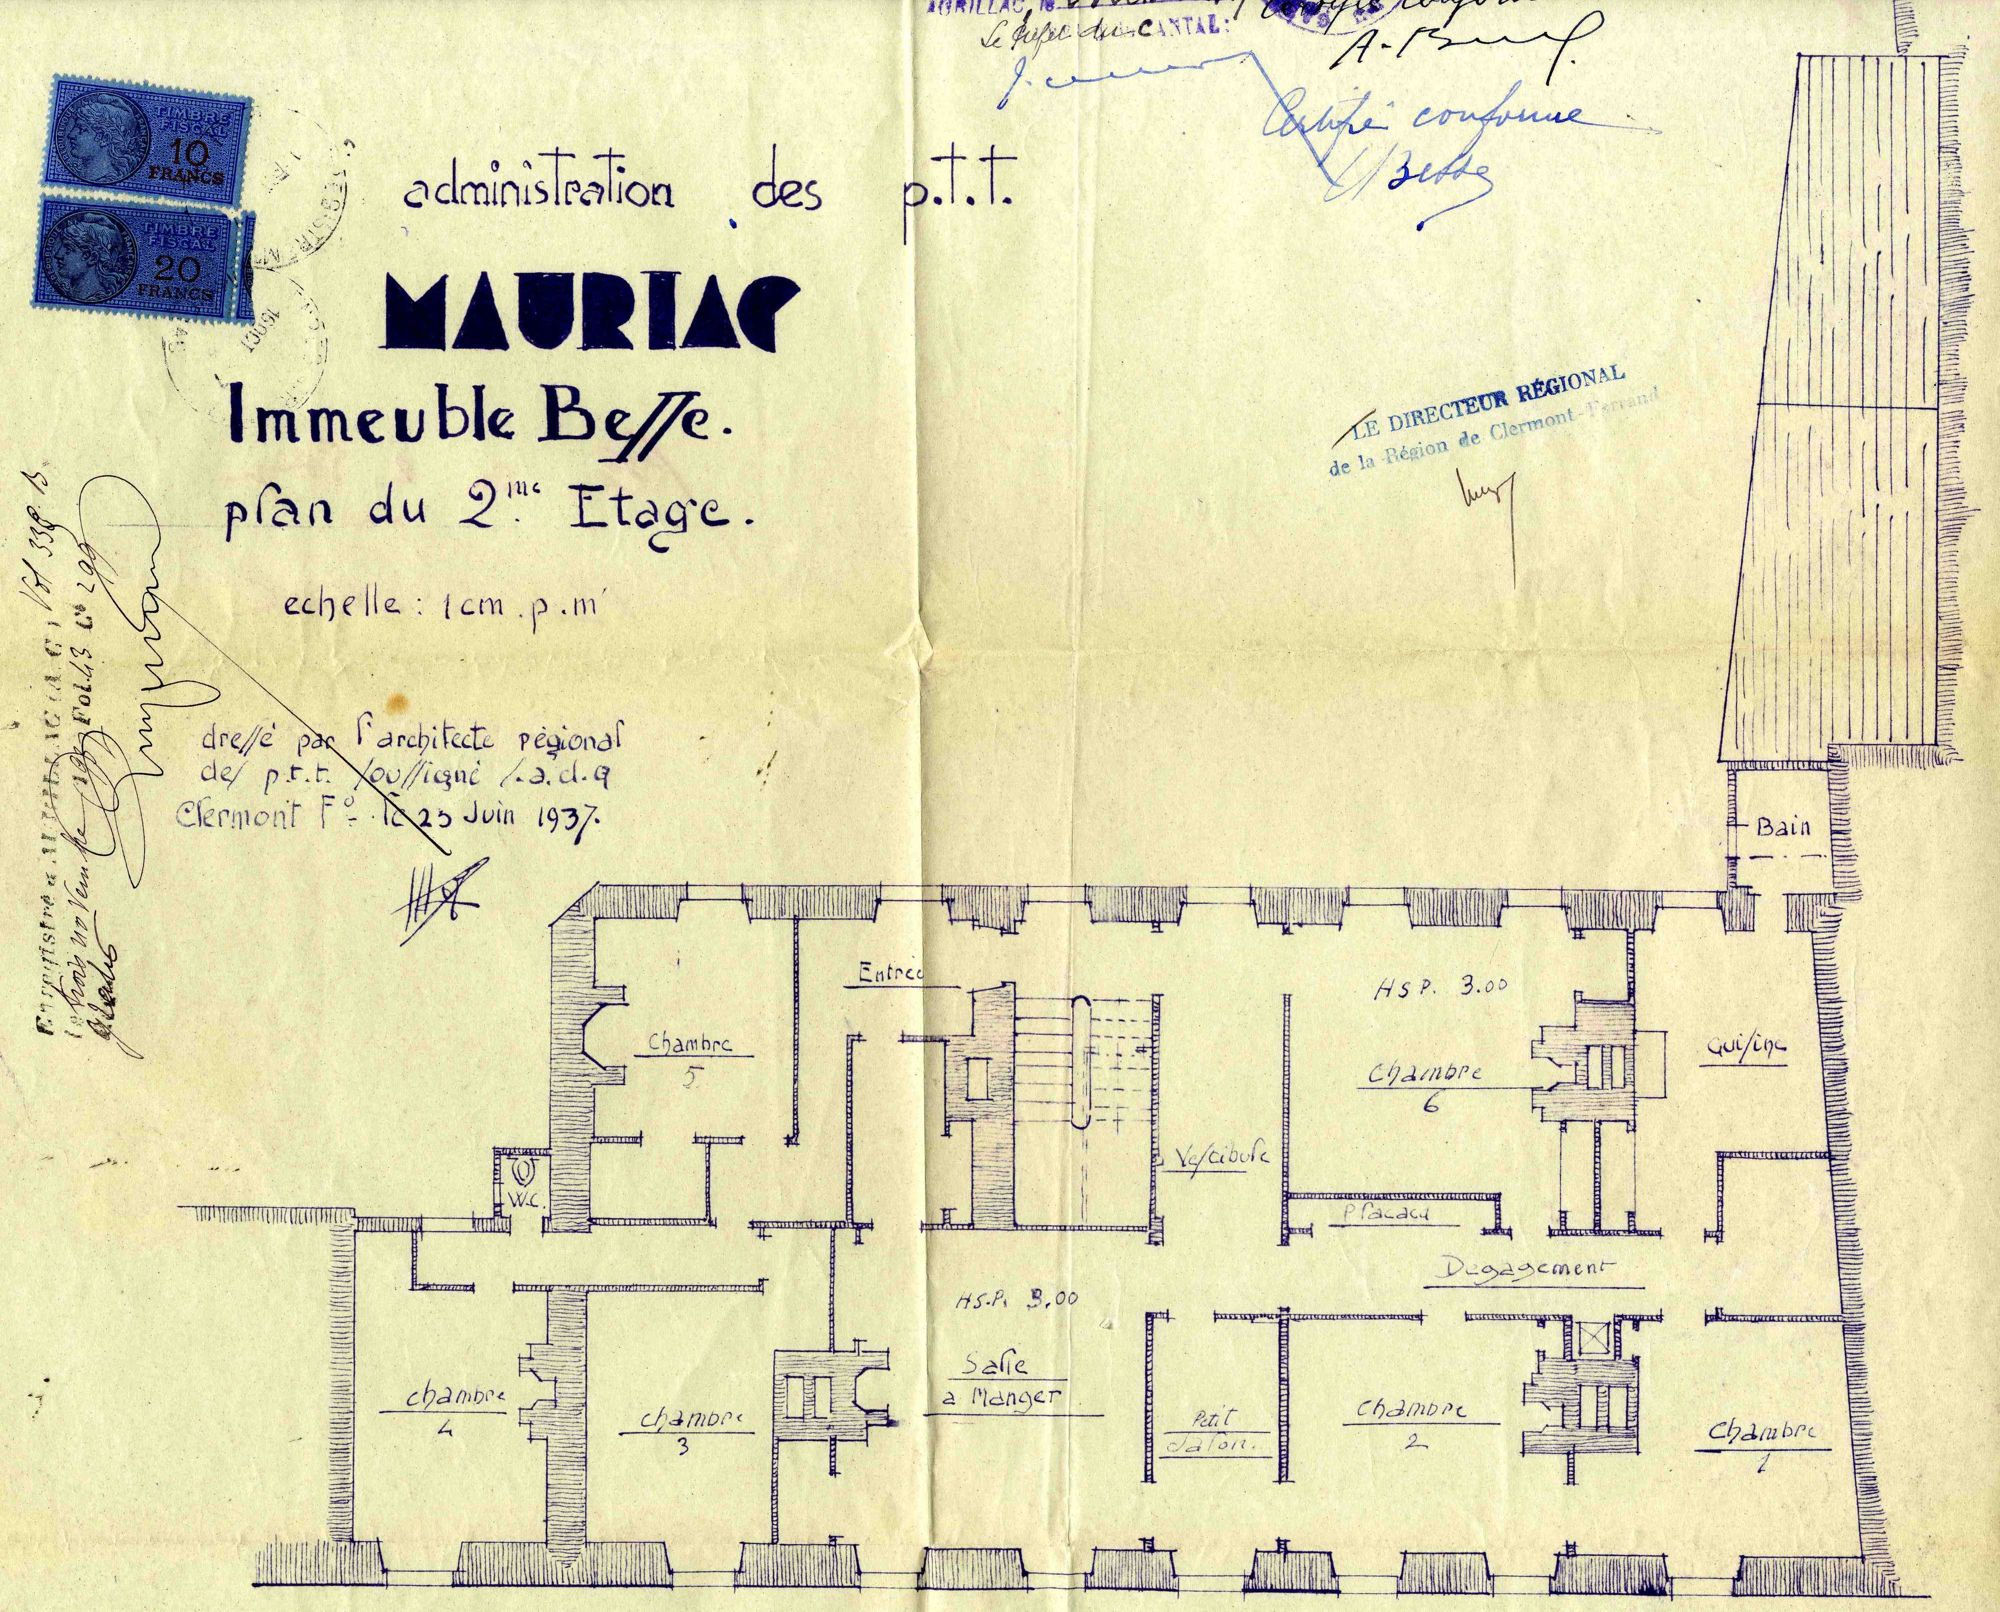 AURILLAC, le
Le Préfet du CANTAL:
Certifié conforme
Besse
TIMBRE
FISCAL
10
FRANCS
TIMBRE
FISCAL
20
FRANCS
administration des p.t.t.
MAURIAC
Immeuble Besse.
plan du 2.me Etage.
echelle : 1 cm . p . m
LE DIRECTEUR RÉGIONAL
de la Région de Clermont-Ferrand
dressé par l'architecte régional
des p.t.t. soussigné s.a.d.q
Clermont Fd. le 25 Juin 1937.
Vol 338
Fol. 43 C 299
Bain
Entrée
Chambre
5
H S P. 3.00
Chambre
6
Cuisine
Vestibule
Placard
W.C.
Degagement
H.S.P. 3.00
Salle
a Manger
Chambre
4
Chambre
3
Petit
Salon.
Chambre
2
Chambre
1